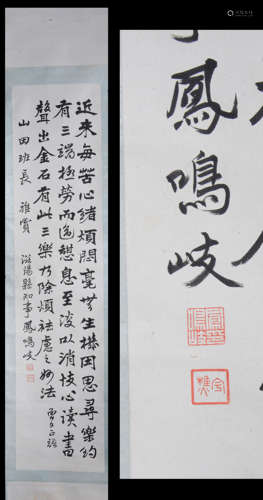 近来每苦心绪烦闷毫無生機因思尋樂約
有三端極勞而逸憩息至淡以消技心讀書
聲出金石有此三樂乃除煩祛慮之妙法
曾文正語
山田班長 雅賞
滋陽縣知事鳳鳴岐
鳳鳴岐